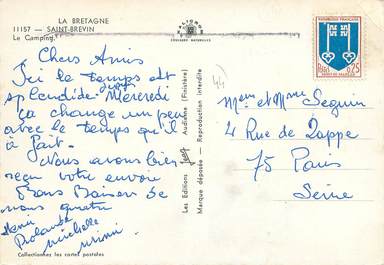 LA BRETAGNE
11157 — SAINT-BREVIN
Le Camping.
Chers Amis
Ici le temps est
splendide Mercredi
ça change un peu
avec le temps qu'il
a fait.
Nous avons bien
reçu votre envoie
Bons Baisers de
nous quatre
michelle
Collectionnez les cartes postales
COULEURS NATURELLES
Les Editions Jack Audierne (Finistère)
Marque déposée — Reproduction interdite
44
REPUBLIQUE FRANÇAISE
POSTES 0,25
MONT-DE-MARSAN
Mem et Mme Seguin
4 Rue de Lappe
75 Paris
Seine